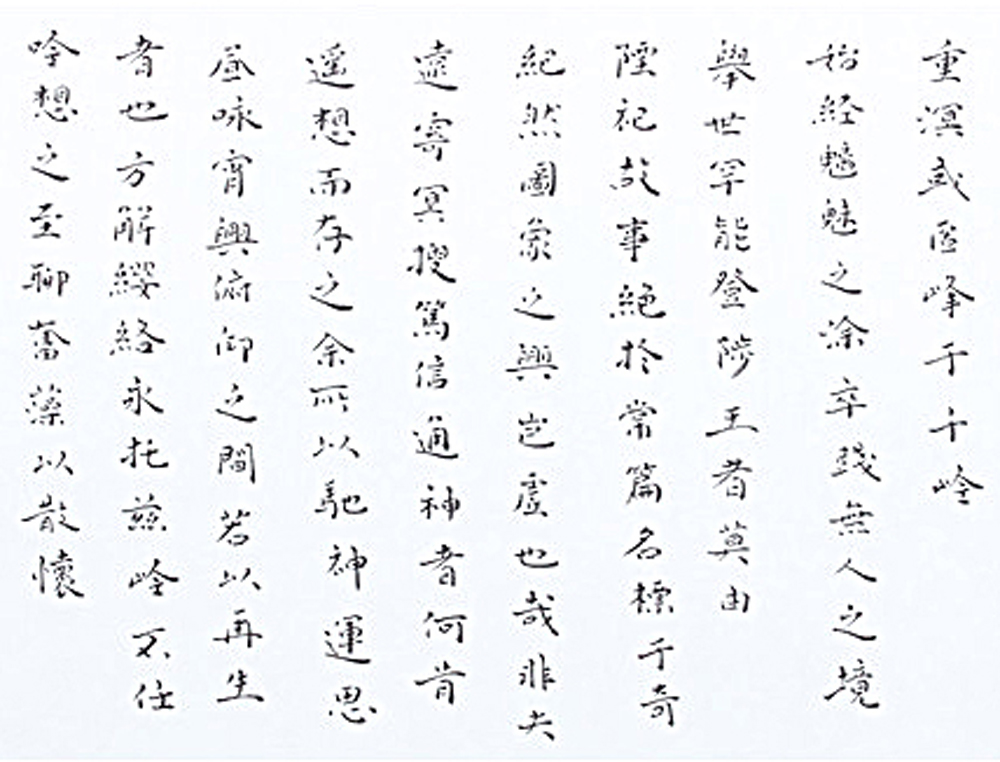 重溟或匿峰于千岭
始经魑魅之涂卒踐無人之境
舉世罕能登陟王者莫由
陻祀故事絕於常篇名標于奇
紀然圖象之興豈虛也哉非夫
遠寄冥搜篤信通神者何肯
遥想而存之余所以馳神運思
昼咏宵興俯仰之間若以再生
者也方解纓絡永托兹岭不任
吟想之至聊奮藻以散懷